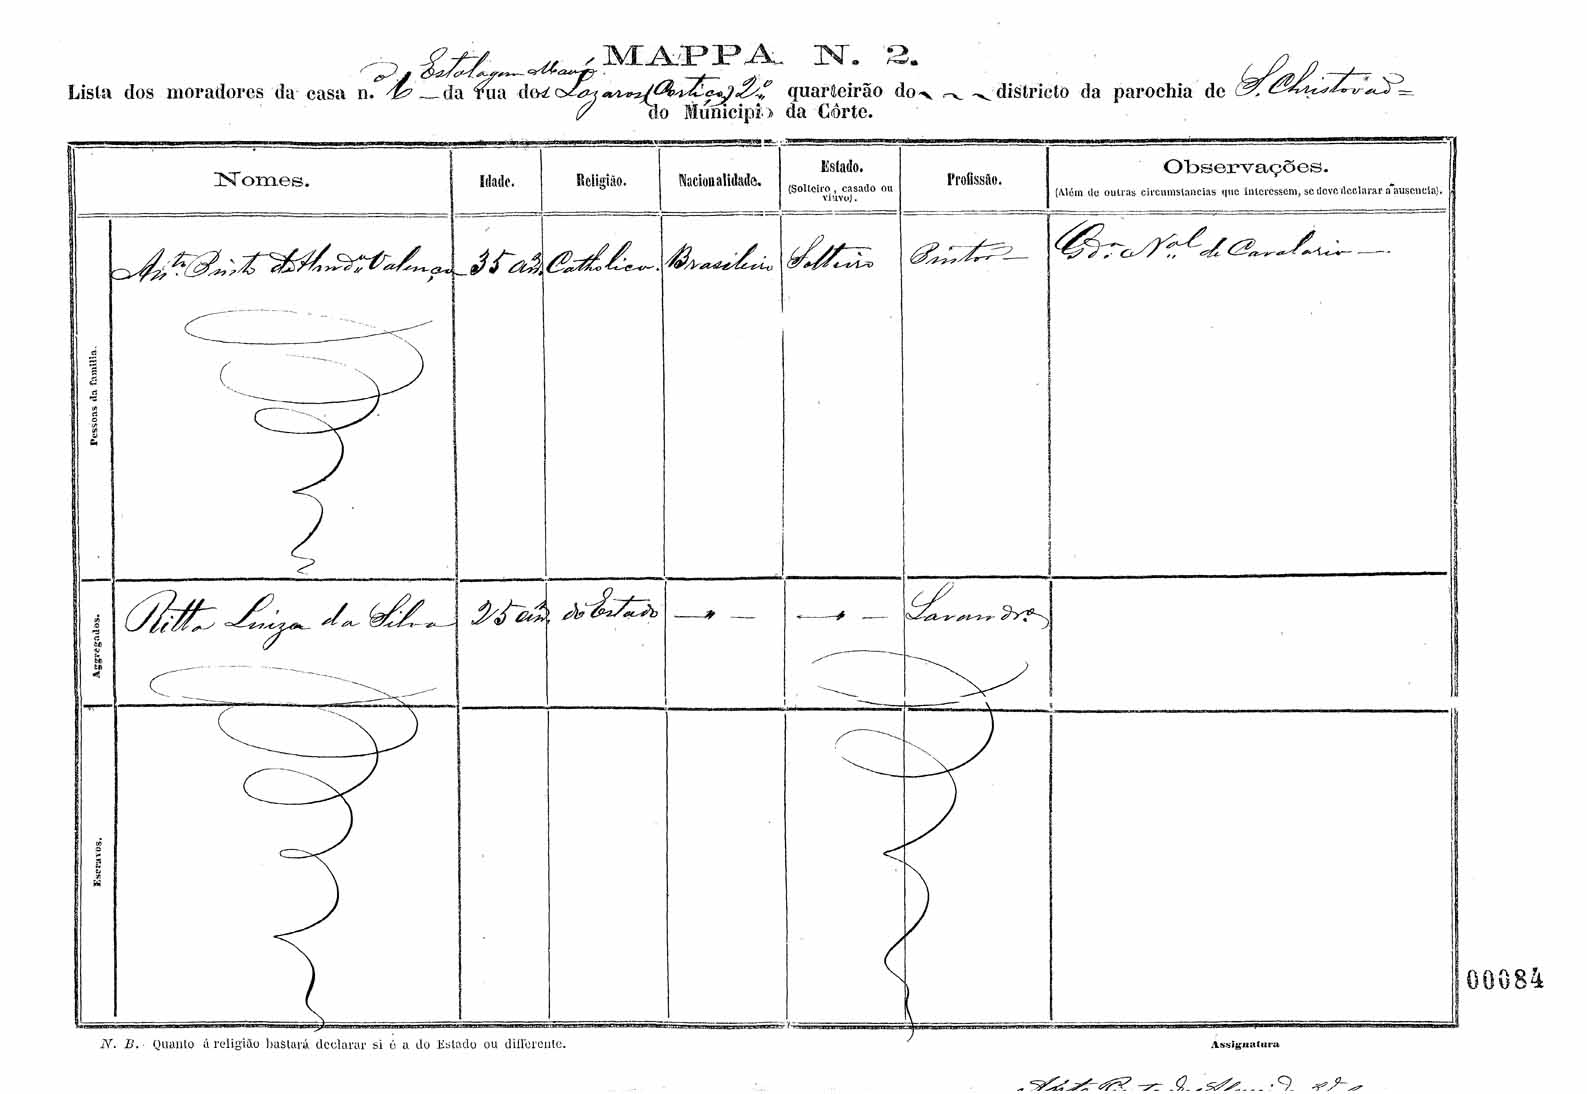 MAPPA N. 2.
Estalagem Mauá
Lista dos moradores da casa n. 6 da rua dos Lazaros (Cortiço) 2º quarteirão do districto da parochia de S. Christovão
do Municipio da Côrte.
Nomes. Idade. Religião. Nacionalidade. Estado. (Solteiro, casado ou viuvo). Profissão. Observações. (Além de outras circumstancias que interessem, se deve declarar a ausencia).
Pessoas da familia.
Antº Pinto Valença 35 an. Catholica. Brasileiro Solteiro Pintor Gda Nal de Cavalaria
Aggregados.
Ritta Luiza da Silva 25 an. do Estado — " — — " — Lavandra
Escravos.
00084
N. B. Quanto á religião bastará declarar si é a do Estado ou differente.
Assignatura